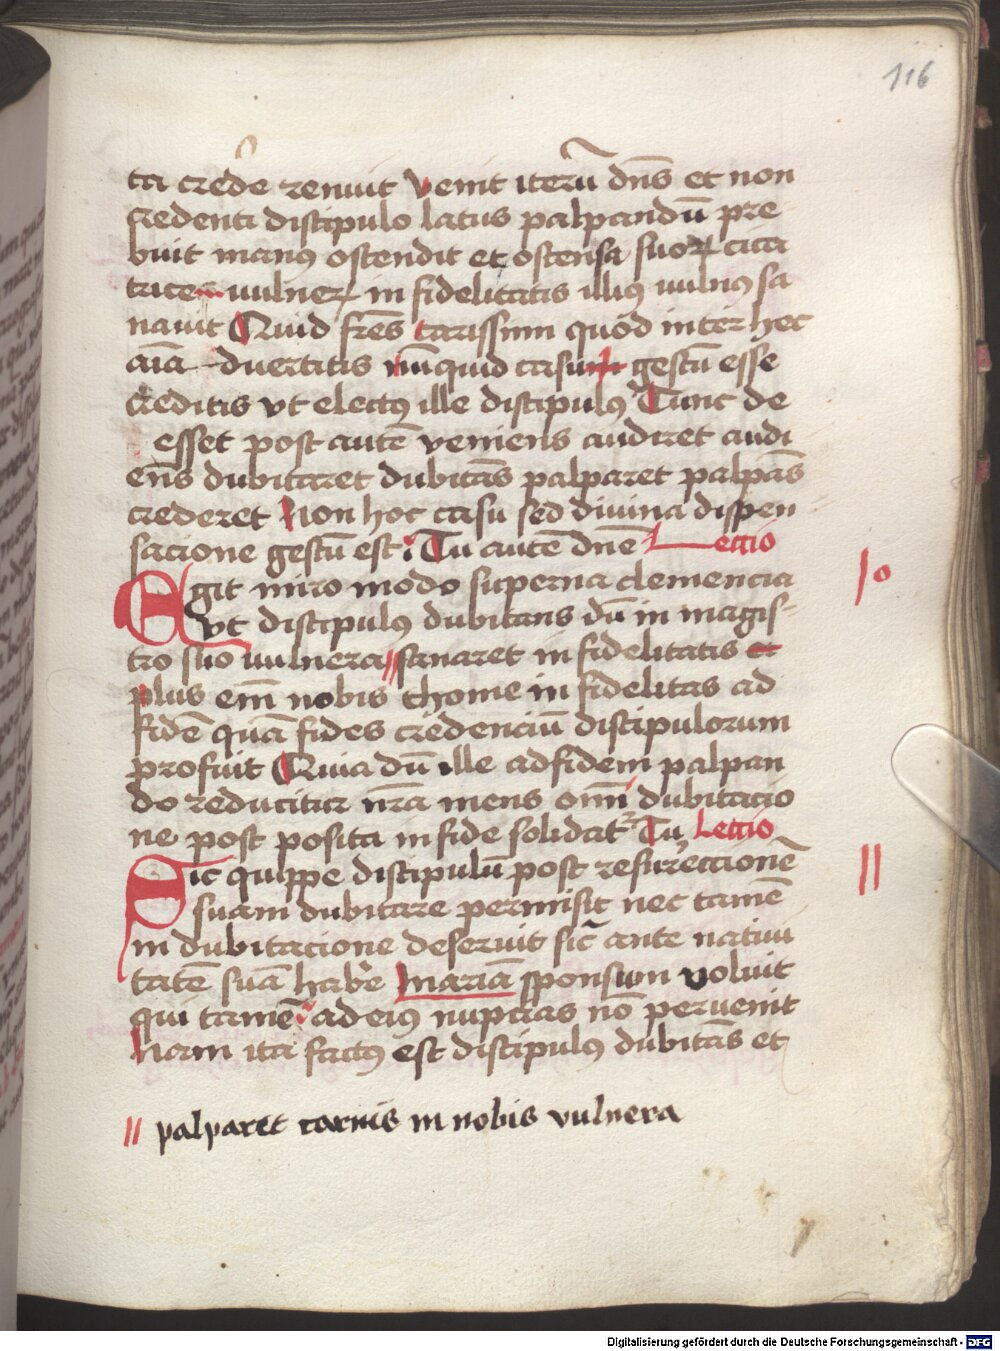 116
ta crede renuit Venit iterū dn̄s et non
credenti discipulo latus palpandū pre
buit manus ostendit et ostensa suoꝝ cica
trice vulneꝝ in fidelitatis illiꝰ vulnꝰ sa
nauit Quid fr̄es carissimi quod inter hec
aīa duertitis nūquid casu gestū esse
creditis vt electꝰ ille discipulꝰ Tunc de
esset post autē veniens audiret audi
ēns dubitaret dubitās palparet palpās
crederet Non hoc casu sed diuina dispen
sacione gestū est : Tu autē dn̄e Lectio
Egit miro modo superna clemencia
vt discipulꝰ dubitans dū in magis-
tro suo vulnera // sanaret in fidelitatis et
plus em̄ nobis thome in fidelitas ad
fidē quā fides credenciū discipulorum
profuit Quia dū ille ad fidem palpan
do reducitur nr̄a mens om̄i dubitacio
ne post posita in fide solidat᷑ Tu Lectio
10
Sic quippe discipulū post resurrectionē
11
suam dubitare permisit nec tamē
in dubitacione deseruit sic̄ ante natiui
tatē suā habe᷑ Mariā sponsum voluit
qui tamē : ad eiꝰ nupcias nō peruenit
Nam ita factꝰ est discipulꝰ dubitās et
// palparet carnis in nobis vulnera
Digitalisierung gefördert durch die Deutsche Forschungsgemeinschaft - DFG